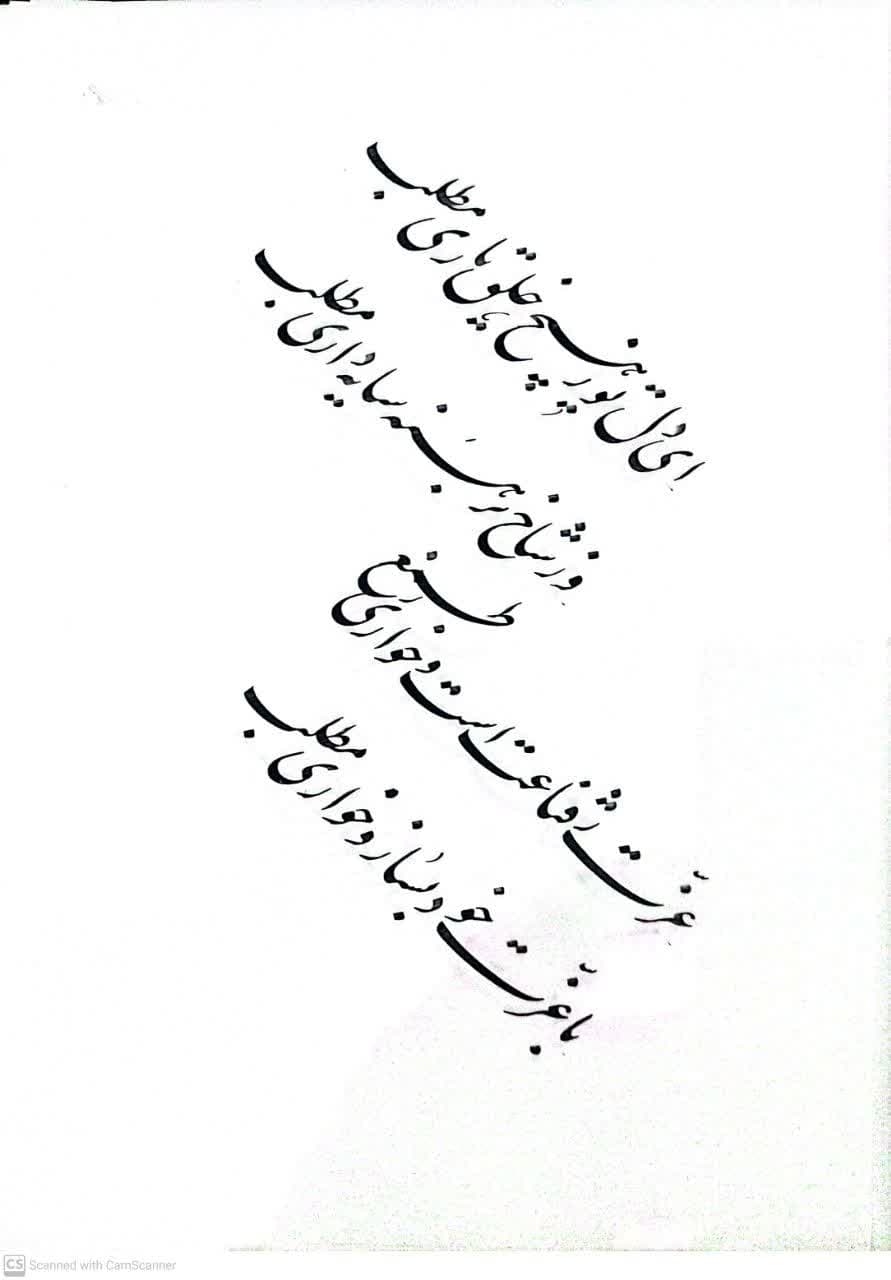 ای دل تو ز هیچ خلق یاری مطلب
وز شاخ برهنه سایه داری مطلب
عزّت ز قناعت است و خواری ز طمع
با عزّت خود بساز و خواری مطلب
CS Scanned with CamScanner